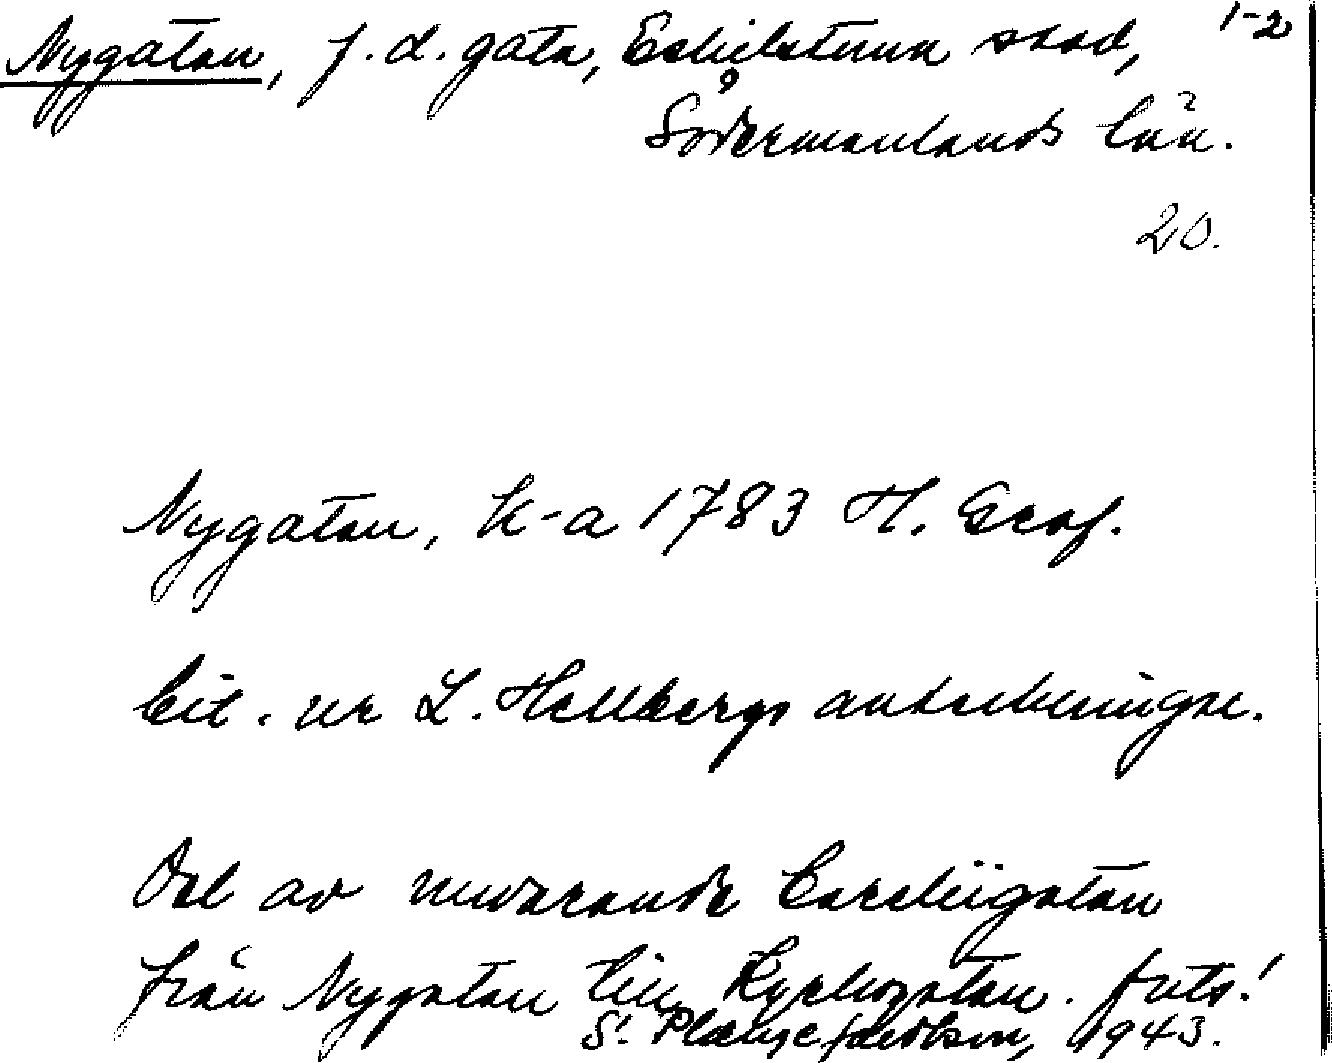 Nygatan, f.d. gata, Eskilstuna stad, 1-2
Södermanlands län.
20.
Nygatan, K-a 1783 H. Graf.
Cit. ur L. Hellbergs anteckningar.
Del av nuvarande Careliigatan
från Nygatan till Kyrkogatan. forts!
S. 1943.